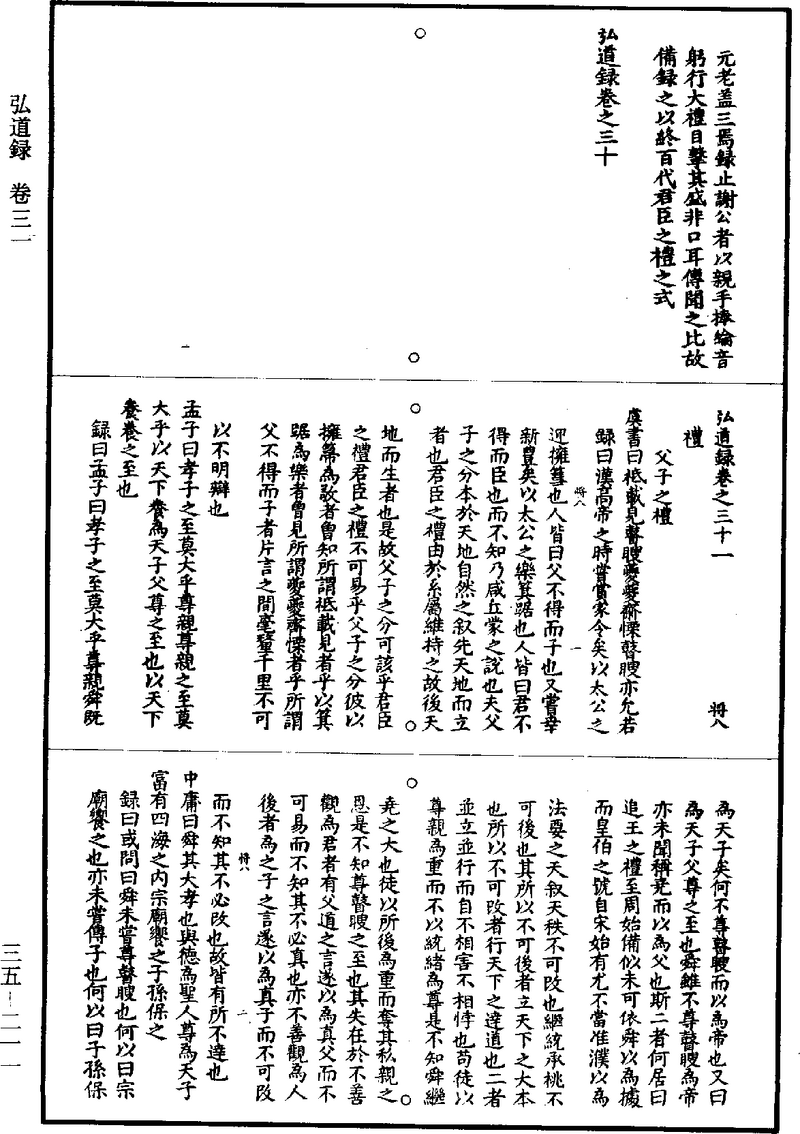 弘道録　卷三一
三五-二一一
元老蓋三焉録止謝公者以親手捧綸音
躬行大禮目擊其盛非口耳傳聞之比故
備録之以終百代君臣之禮之式
弘道録卷之三十
弘道録卷之三十一
將八
禮
父子之禮
虞書曰祗載見瞽瞍夔夔齊慄瞽瞍亦允若
録曰漢高帝之時嘗賞家令矣以太公之
迎擁篲也人皆曰父不得而子也又嘗幸
將八
一
新豐矣以太公之樂箕踞也人皆曰君不
得而臣也而不知乃咸丘蒙之說也夫父
子之分本於天地自然之叙先天地而立
者也君臣之禮由於糸屬維持之故後天
地而生者也是故父子之分可該乎君臣
之禮君臣之禮不可易乎父子之分彼以
擁篲為敬者曾知所謂祗載見者乎以箕
踞為樂者曾見所謂夔夔齊慄者乎所謂
父不得而子者片言之間毫釐千里不可
以不明辯也
孟子曰孝子之至莫大乎尊親尊親之至莫
大乎以天下養為天子父尊之至也以天下
養養之至也
録曰孟子曰孝子之至莫大乎尊親舜既
為天子矣何不尊瞽瞍而以為帝也又曰
為天子父尊之至也舜雖不尊瞽瞍為帝
亦未聞稱堯而以為父也斯二者何居曰
追王之禮至周始備似未可依舜以為據
而皇伯之號自宋始有尤不當准濮以為
法要之天叙天秩不可改也繼統承祧不
可後也其所以不可後者立天下之大本
也所以不可改者行天下之達道也二者
並立並行而自不相害不相悖也苟徒以
尊親為重而不以統緒為尊是不知舜繼
堯之大也徒以所後為重而奪其私親之
恩是不知尊瞽瞍之至也其失在於不善
觀為君者有父道之言遂以為真父而不
可易而不知其不必真也亦不善觀為人
後者為之子之言遂以為真子而不可改
將八
二
而不知其不必改也故皆有所不達也
中庸曰舜其大孝也與德為聖人尊為天子
富有四海之內宗廟饗之子孫保之
録曰或問曰舜未嘗尊瞽瞍也何以曰宗
廟饗之也亦未嘗傳子也何以曰子孫保